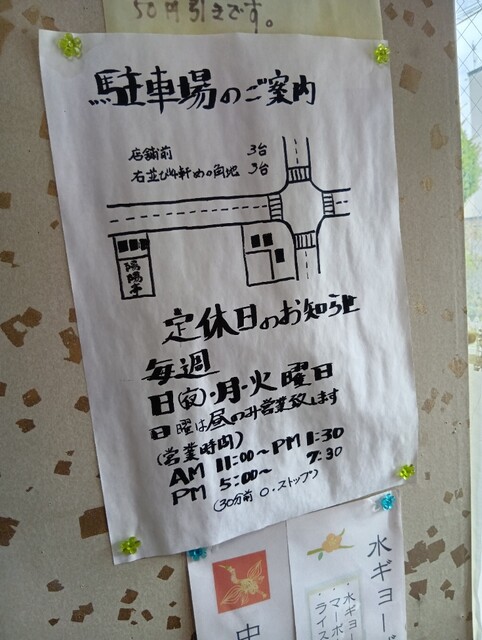 50円引きです。
駐車場のご案内
店舗前 3台
右並び4軒めの角地 3台
陽陽亭
定休日のお知らせ
毎週
日(夜)・月・火曜日
日曜は昼のみ営業致します
(営業時間)
AM 11:00～PM 1:30
PM 5:00～ 7:30
(30分前 O.ストップ)
水ギョー
水ギョー
マーボ
ライス
中